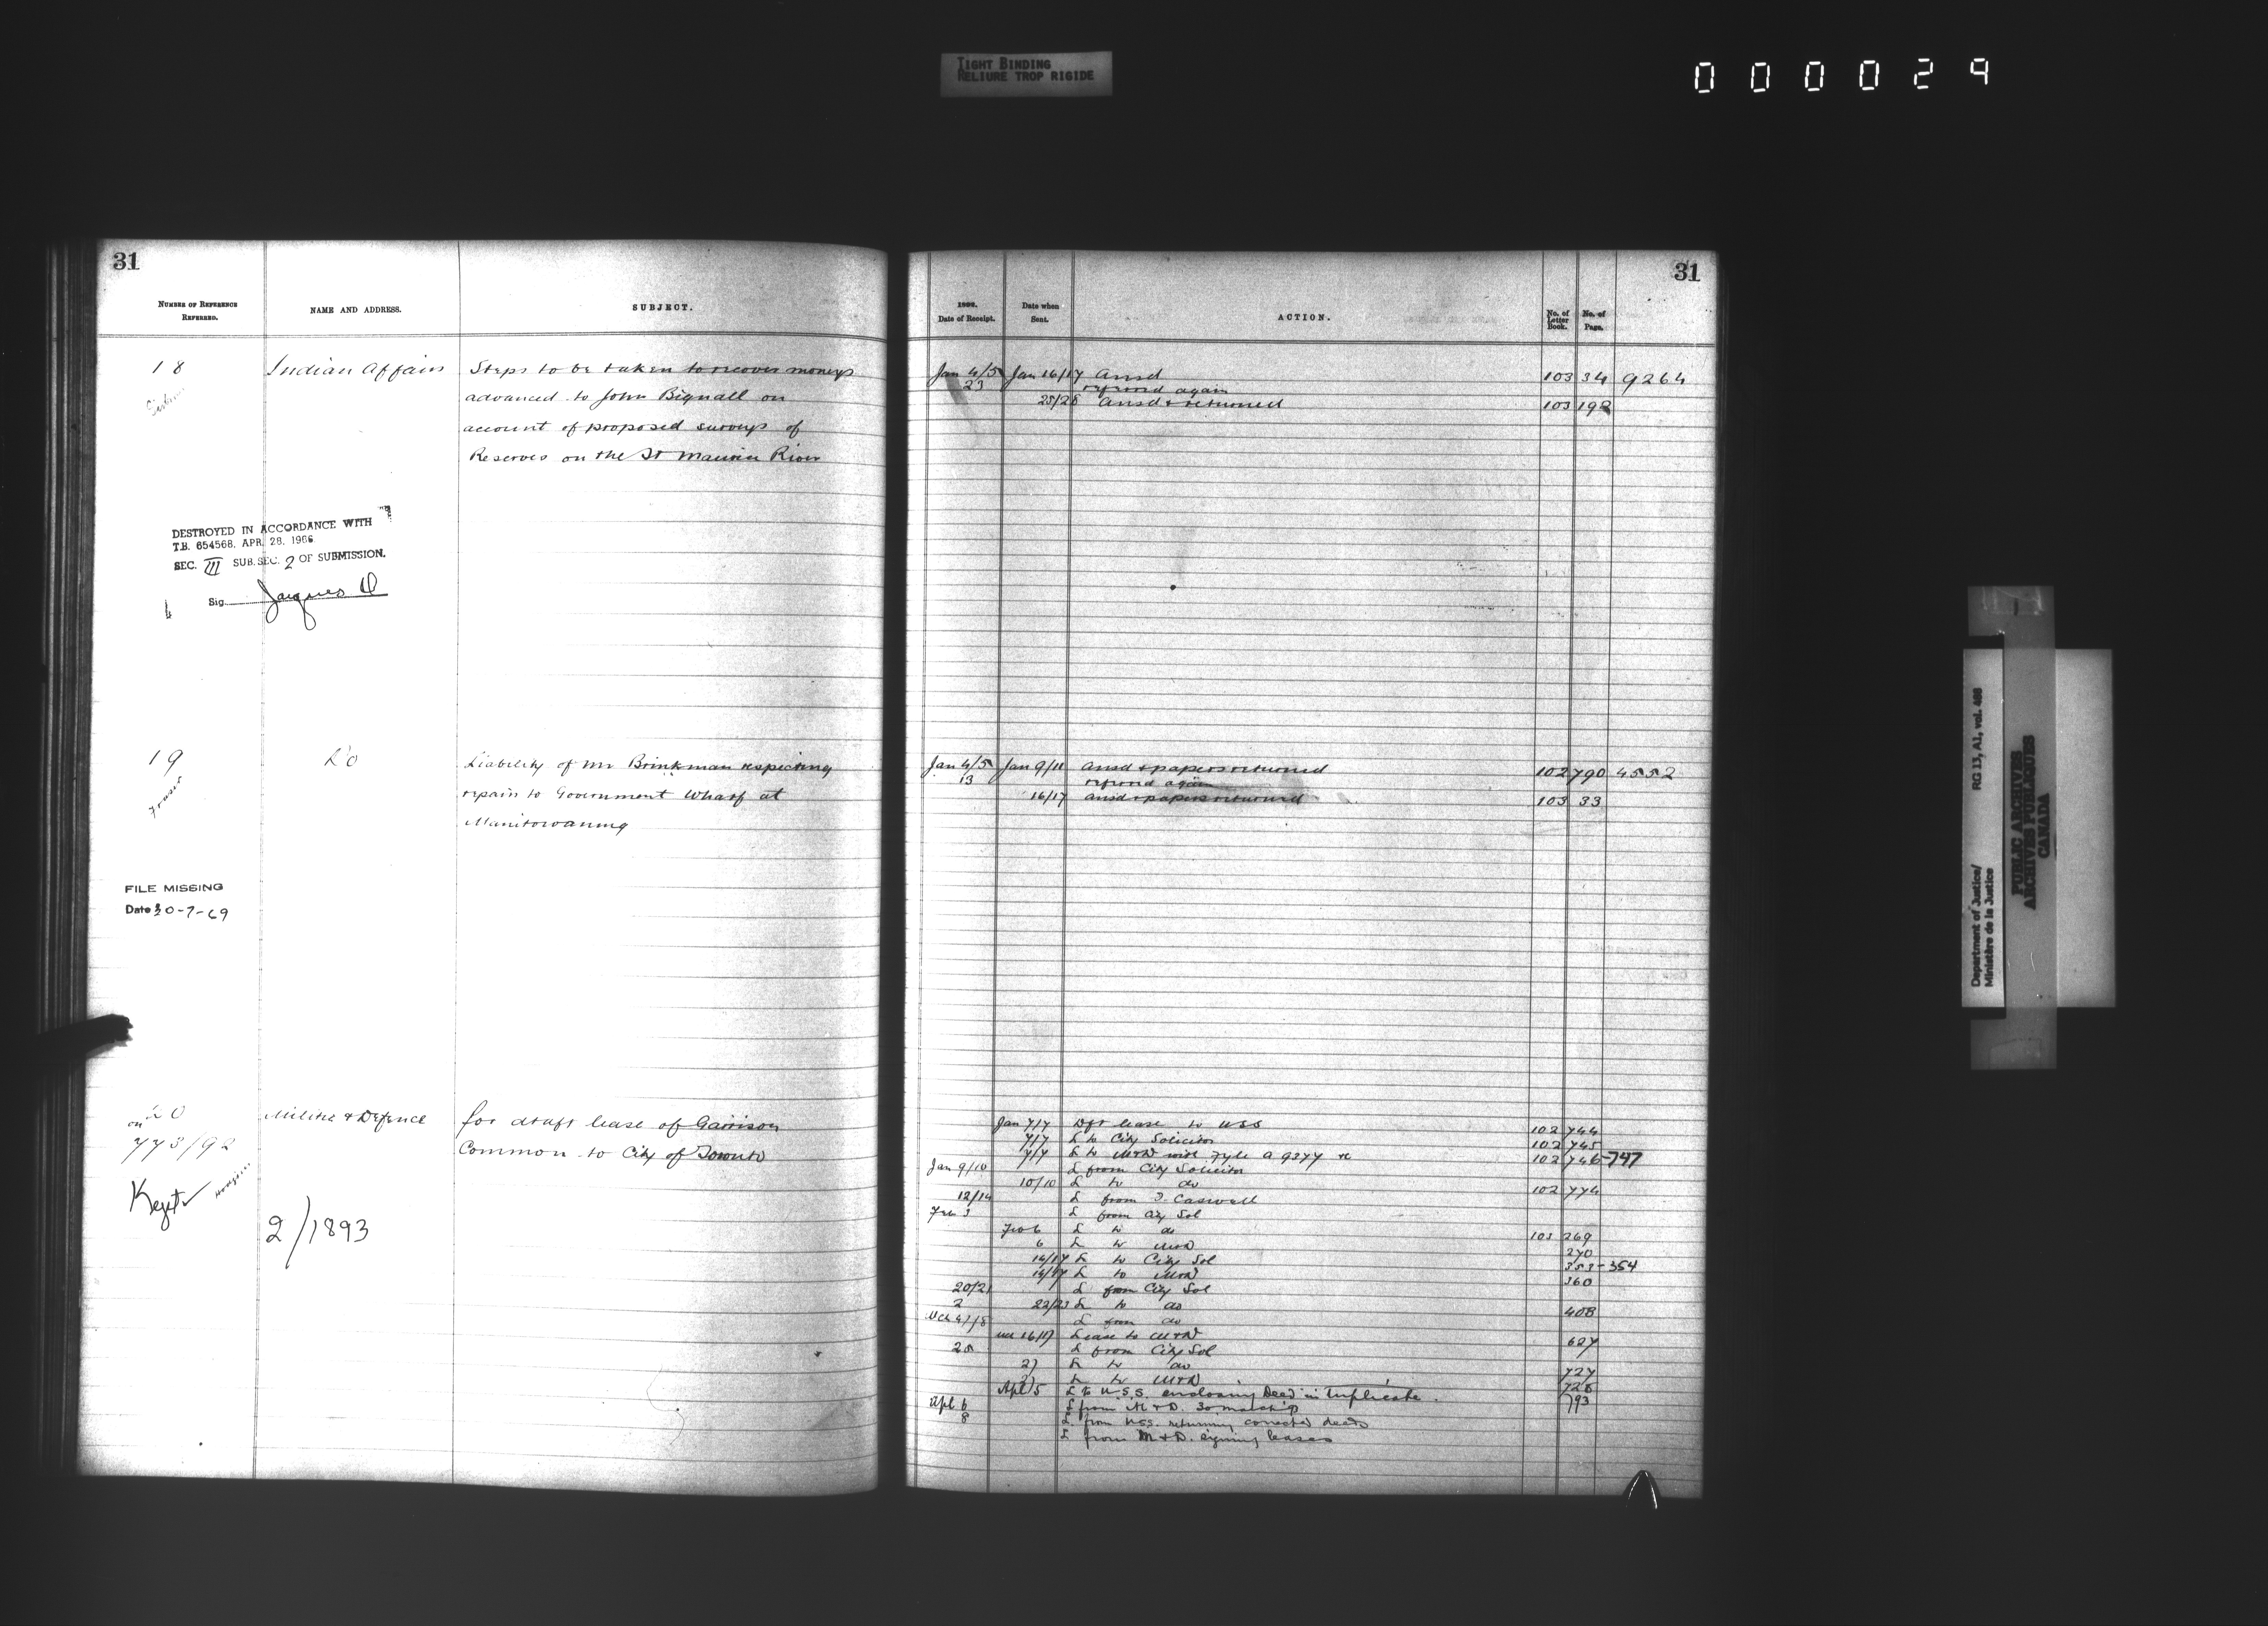 TIGHT BINDING
RELIURE TROP RIGIDE
000029
31
NUMBER OF REFERENCE REFERRED.
NAME AND ADDRESS.
SUBJECT.
18
Indian Affairs
Steps to be taken to recover moneys
advanced to John Bignall on
account of proposed surveys of
Reserves on the St Maurice River
DESTROYED IN ACCORDANCE WITH
T.B. 654568, APR. 28, 1966
SEC. III SUB. SEC. 2 OF SUBMISSION.
Sig. Jacques D
19
Do
Liability of Mr Brinkman respecting
repairs to Government Wharf at
Manitowaning
FILE MISSING
Date 30-7-69
20
on
773/92
Militia & Defence
for draft lease of Garrison
Common to City of Toronto
2/1893
31
Date of Receipt.
Date when Sent.
ACTION.
No. of Letter Book.
No. of Page.
Jan 4/5 Jan 16/17 Ansd 103 34 9264
23 referred again
25/28 Ansd & returned 103 198
Jan 4/5 Jan 9/11 Ansd & papers returned 102 790 4552
13 referred again
16/17 ansd & papers returned 103 33
Jan 7/7 Dft lease to USS 102 744
7/7 L to City Solicitor 102 745
7/7 L to M&D with Fyle A 9377 102 746-747
Jan 9/10 L from City Solicitor
10/10 L to do 102 774
12/14 L from T. Caswell
Feb 3 L from City Sol
Feb 6 L to do 103 269
6 L to M&D 270
16/17 L to City Sol 353-354
L to M&D 360
20/21 L from City Sol
22/23 L to do 408
L from do
16/17 Lease to M&D 627
L from City Sol
L to do 727
L to M&D 728
Apl 5 L to U.S.S. enclosing Deed in triplicate. 793
Apl 6 L from M&D. 30 March
8 L from USS. returning corrected deeds
L from M&D. signing leases
Department of Justice/
Ministère de la Justice
RG 13, A1, vol. 488
PUBLIC ARCHIVES
ARCHIVES PUBLIQUES
CANADA